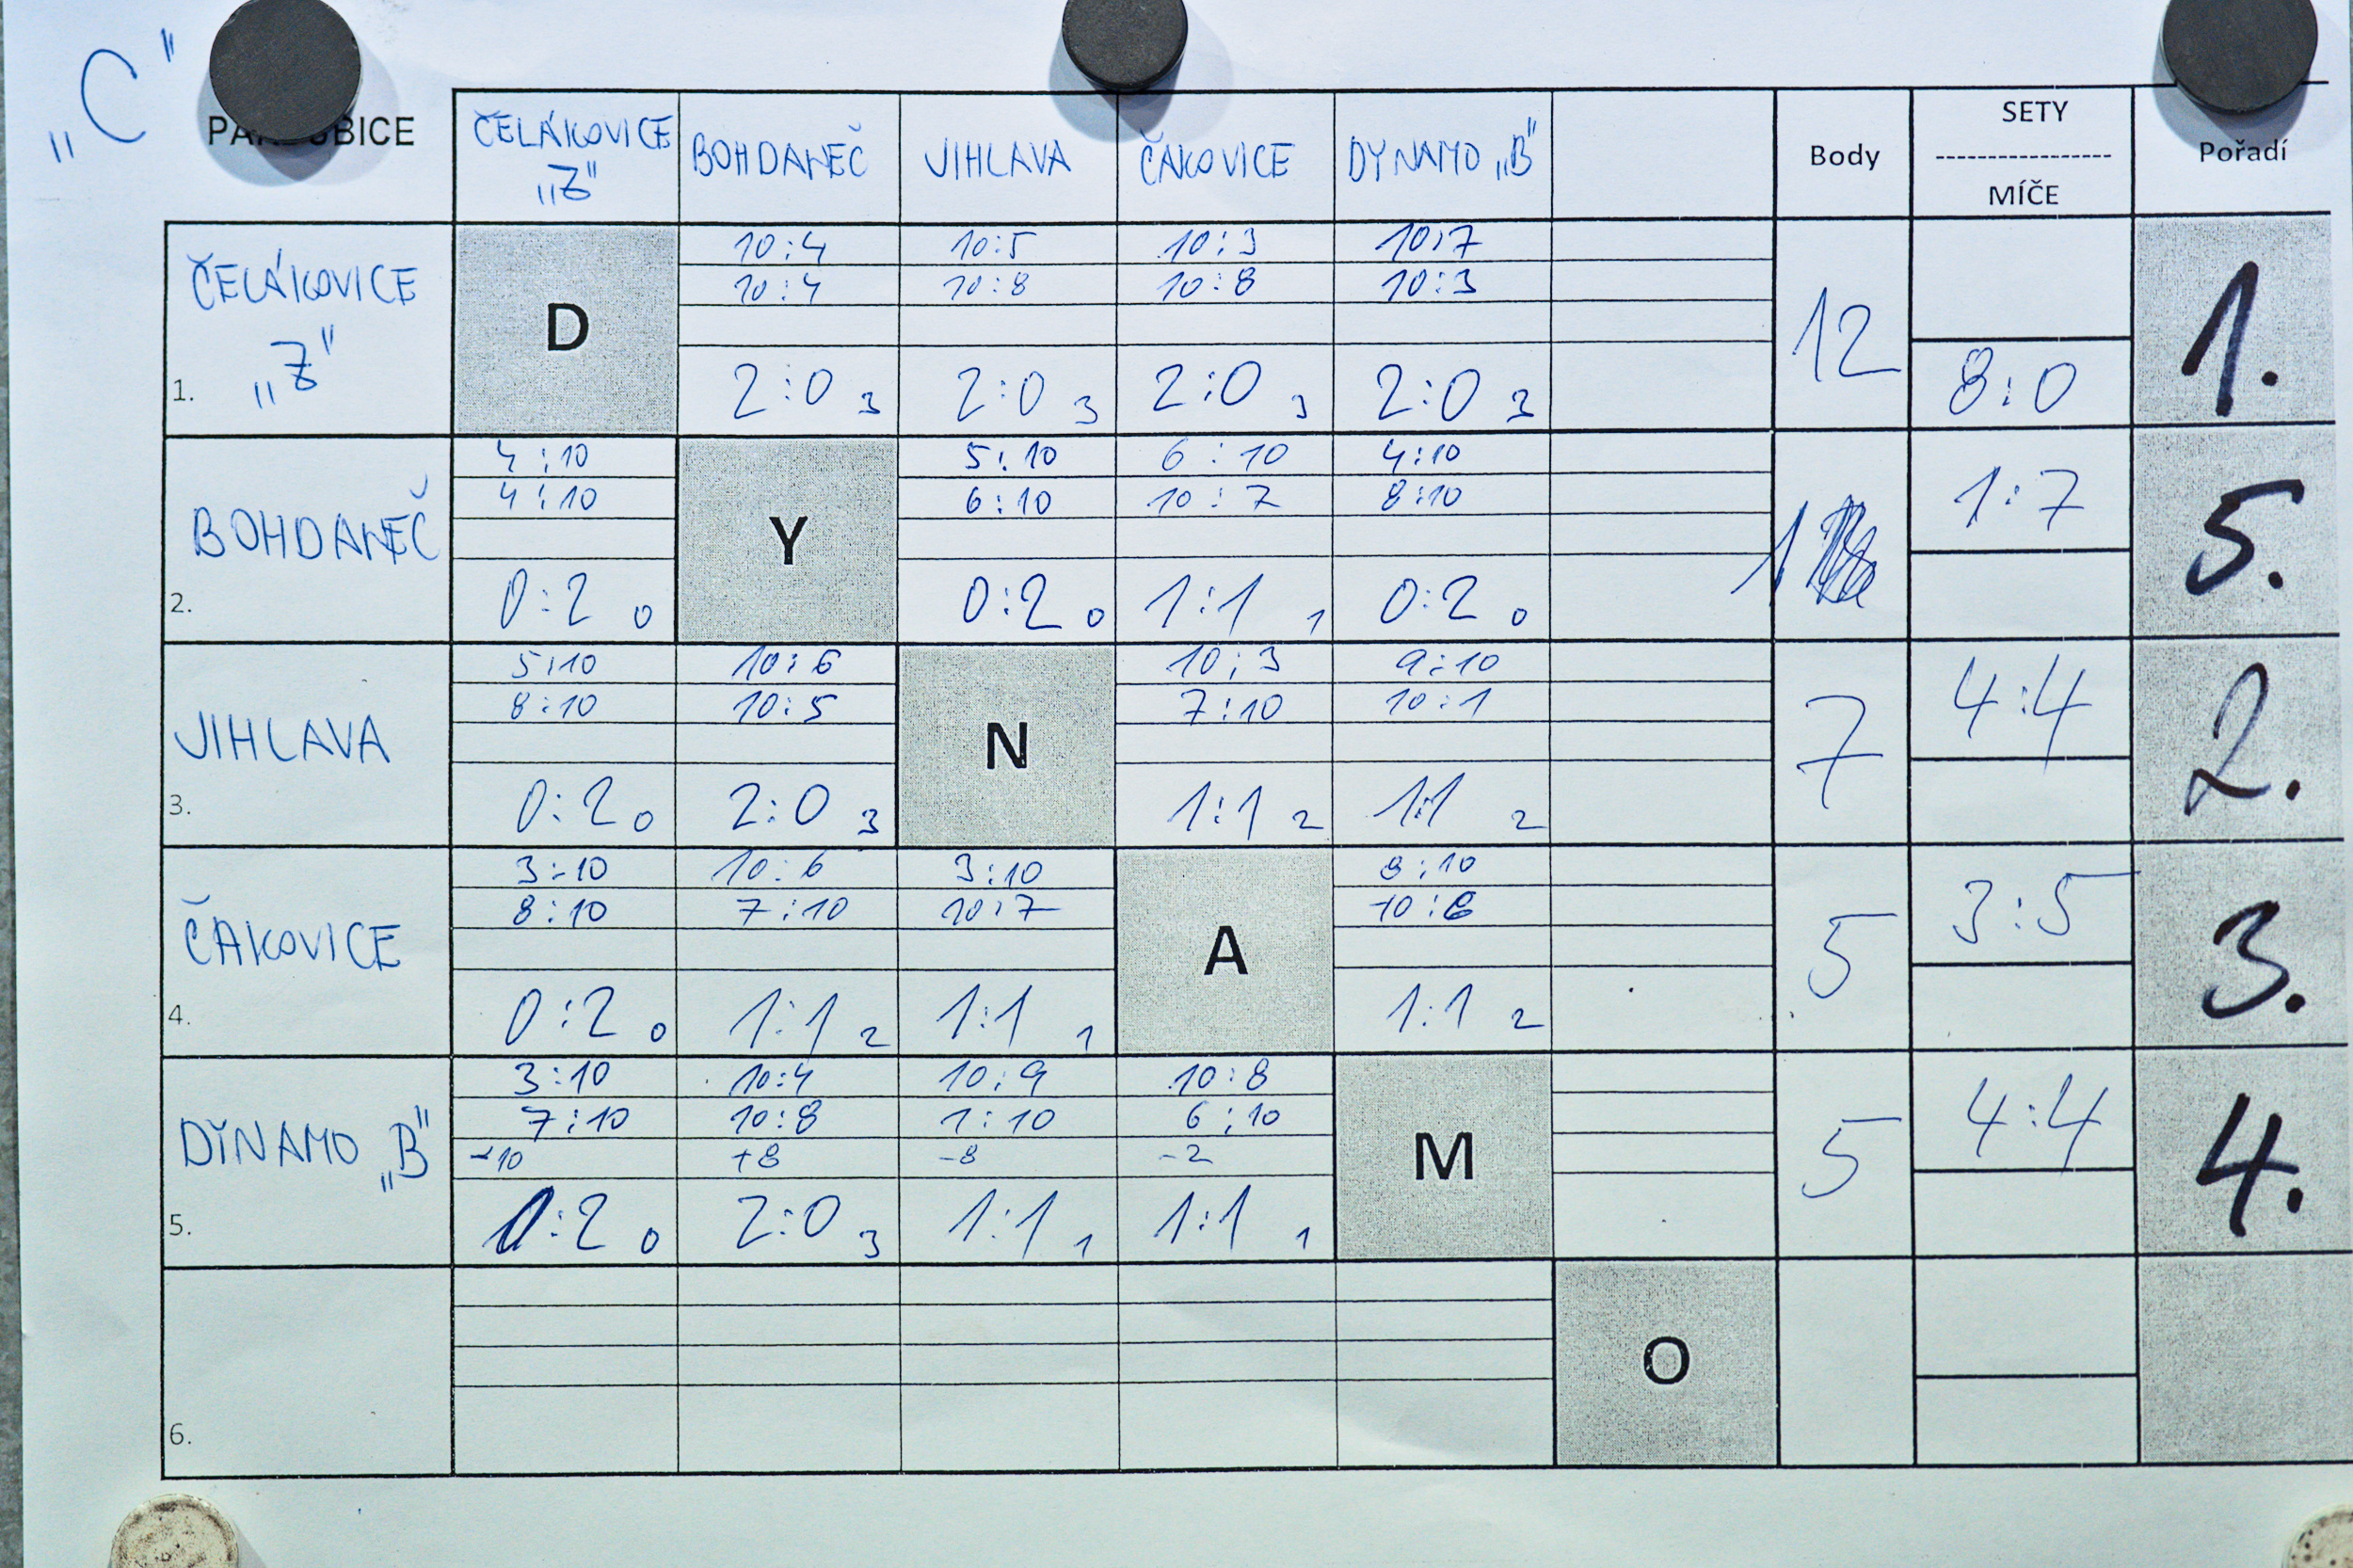 „C“
PARDUBICE
ČELÁKOVICE „Z“
BOHDANEČ
JIHLAVA
ČAKOVICE
DYNAMO „B“
Body
SETY
MÍČE
Pořadí
1.
ČELÁKOVICE
„Z“
D
10:4 10:5 10:3 10:7
10:4 10:8 10:8 10:3
2:0 3 2:0 3 2:0 3 2:0 3
12
8:0
1.
2.
BOHDANEČ
4:10 5:10 6:10 4:10
4:10 6:10 10:7 8:10
0:2 0 Y 0:2 0 1:1 1 0:2 0
1
1:7
5.
3.
JIHLAVA
5:10 10:6 10:3 9:10
8:10 10:5 7:10 10:1
0:2 0 2:0 3 N 1:1 2 1:1 2
7
4:4
2.
4.
ČAKOVICE
3:10 10:6 3:10 8:10
8:10 7:10 10:7 10:6
0:2 0 1:1 2 1:1 1 A 1:1 2
5
3:5
3.
5.
DYNAMO „B“
3:10 10:4 10:9 10:8
7:10 10:8 1:10 6:10
-10 +8 -8 -2
0:2 0 2:0 3 1:1 1 1:1 1 M
5
4:4
4.
6.
O